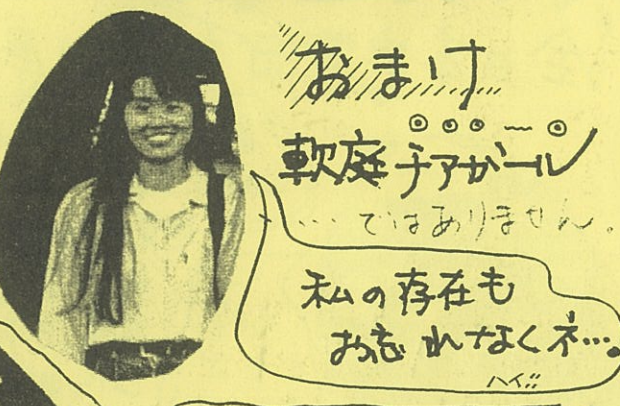 おまけ
軟庭チアガール
……ではありません。
私の存在も
お忘れなくネ…。
ハイ!!